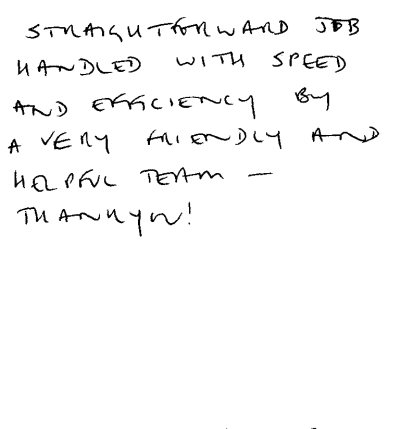 STRAIGHTFORWARD JOB
HANDLED WITH SPEED
AND EFFICIENCY BY
A VERY FRIENDLY AND
HELPFUL TEAM —
THANKYOU!